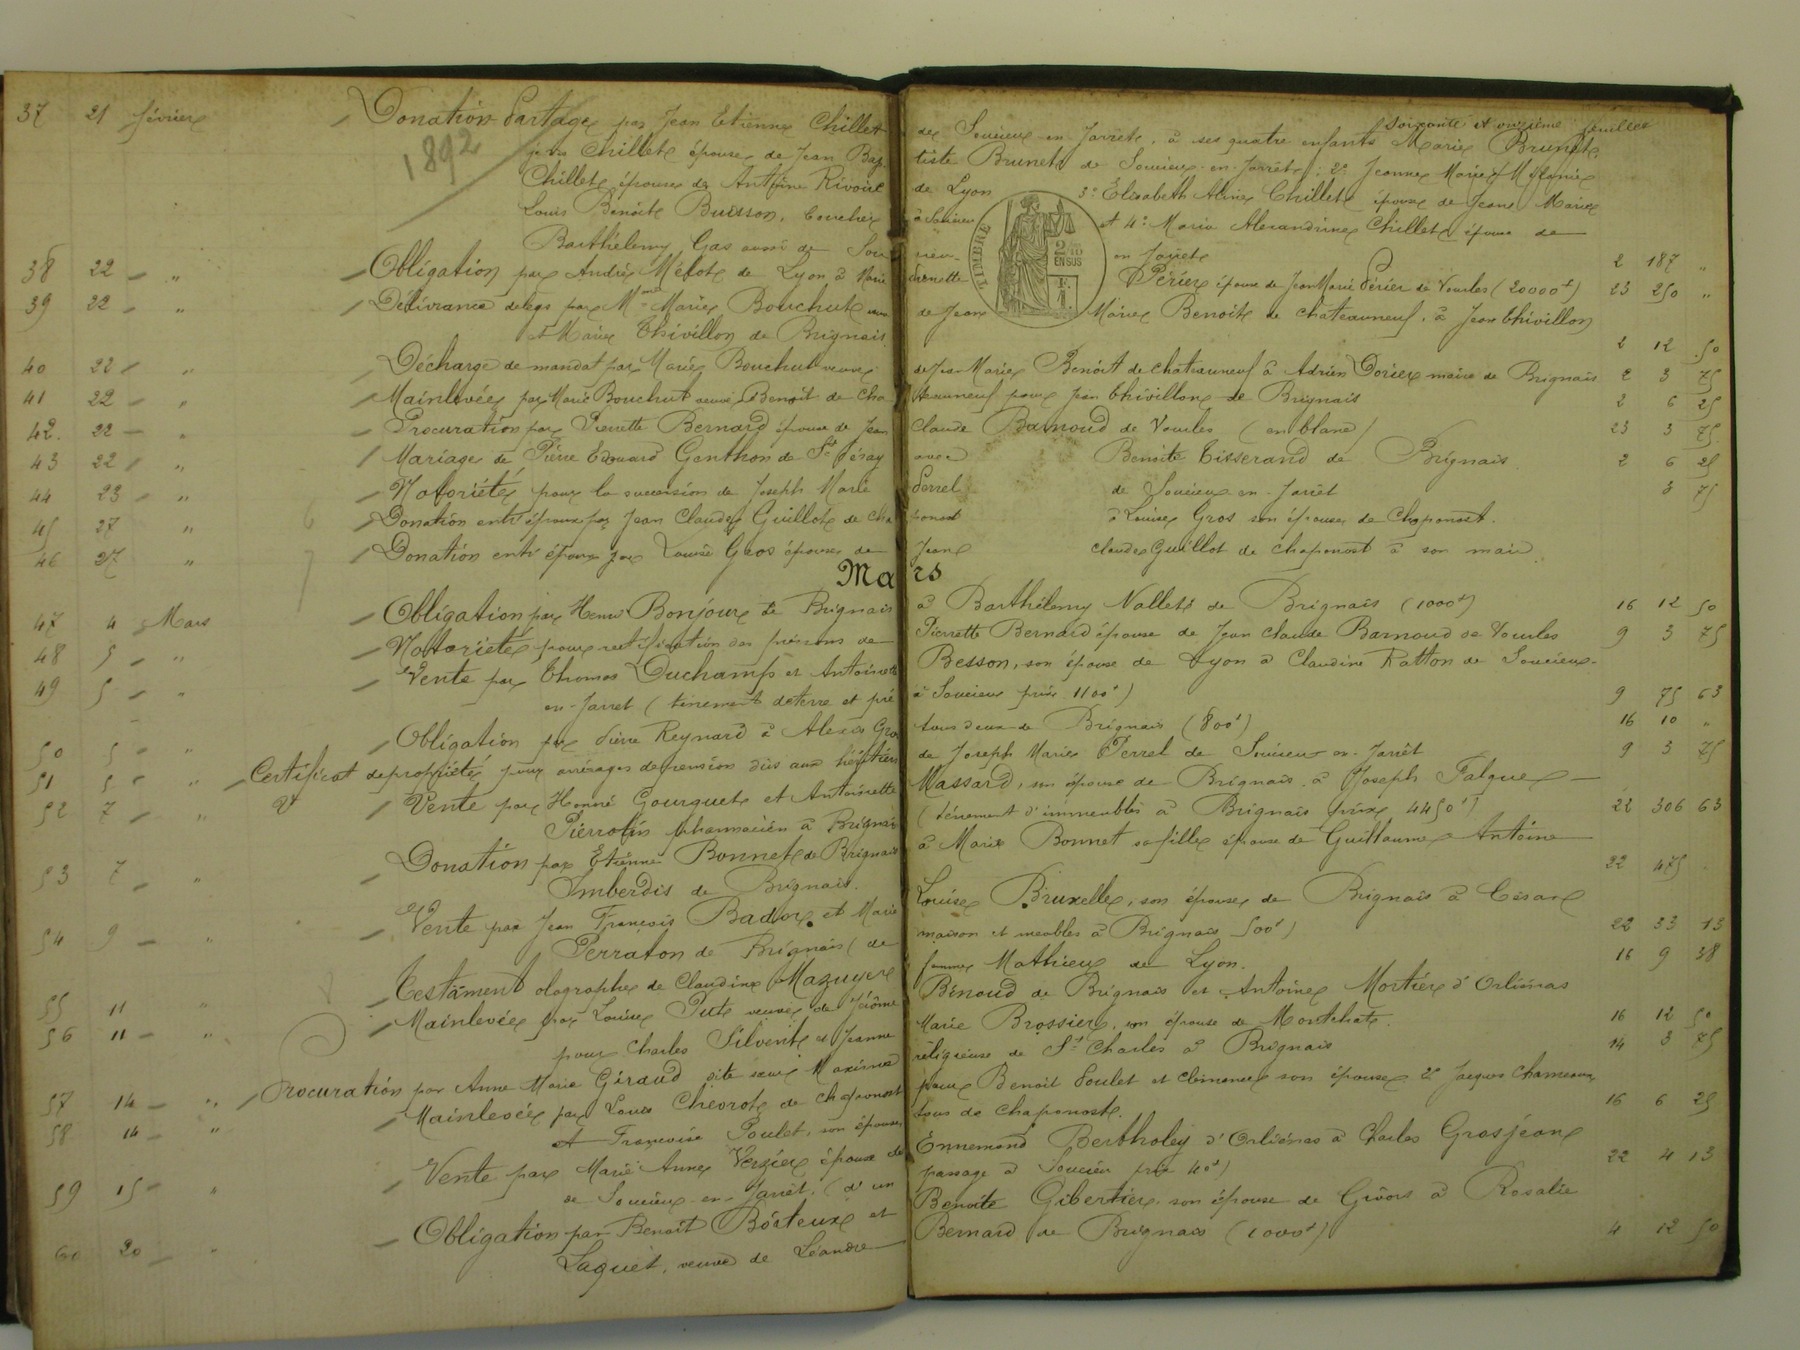 Soixante et onzième feuillet
37 21 février Donation Partage par Jean Etienne Chillet de Soucieu en Jarret, à ses quatre enfants Marie Brunet,
1892
Chillet épouse de Jean Bap tiste Brunet de Soucieu-en-Jarret; 2° Jeanne Marie
Chillet épouse de Antoine Rivoire de Lyon 3° Elisabeth Chillet épouse de Jean Marie
Louis Benoîte Buisson, à Soucieu et 4° Maria Alexandrine Chillet épouse de
TIMBRE 2/10 EN SUS F. 1.
Barthélemy Gas aussi de Sou cieu- en Jarret 2 187 "
38 22 - " Obligation par André Mélot de Lyon à Marie Périer épouse de Jean Marie Périer de Vourles (20000f) 23 250 "
39 22 - " Délivrance de legs par Mme Marie Bouchut veuve de Jean Marie Benoit de Chateauneuf, à Jean Thivillon
et Marie Thivillon de Brignais. 2 12 50
40 22 - " Décharge de mandat par Marie Bouchut veuve de Jean Marie Benoit de chateauneuf à Adrien Dorier maire de Brignais 2 3 75
41 22 - " Mainlevée par Marie Bouchut veuve Benoit de Cha teauneuf pour Jean Thivillon de Brignais 2 6 25
42. 22 - " Procuration par Pierrette Bernard épouse de Jean Claude Barnoud de Vourles (en blanc) 23 3 75
43 22 - " Mariage de Pierre Edouard Genthon de St Péray avec Benoite Tisserand de Brignais. 2 6 25
44 23 - " Notoriété pour la succession de Joseph Marie Perrel de Soucieu-en-Jarret 3 75
45 27 " Donation entr'époux par Jean Claude Guillot de Cha ponost à Louise Gros son épouse de Chaponost.
46 27 " Donation entr'époux par Louise Gros épouse de Jean Claude Guillot de chaponost à son mari
Mars
47 4 - Mars Obligation par Henri Bonjour de Brignais à Barthélemy Nallet de Brignais (1000f) 16 12 50
48 5 - " Notoriété pour rectification des prénoms de Pierrette Bernard épouse de Jean Claude Barnoud de Vourles 9 3 75
49 5 - " Vente par Thomas Duchamp et Antoinette Besson, son épouse de Lyon à Claudine Ratton de Soucieu-
en-Jarret (tènement de terre et pré à Soucieu prix 1100f) 9 75 63
50 5 - " Obligation par Pierre Reynard à Alexis Gros tous deux de Brignais (800f) 16 10 "
51 5 - " Certificat de propriété pour arrérages de pension dûs aux héritiers de Joseph Marie Perrel de Soucieu-en-Jarret 9 3 75
52 7 - " Vente par Honoré Gourguet et Antoinette Massard, son épouse de Brignais, à Joseph Falque
Pierrotin pharmacien à Brignais (tènement d'immeubles à Brignais prix 4450f) 22 306 63
53 7 - " Donation par Etienne Bonnet de Brignais à Marie Bonnet sa fille épouse de Guillaume Antoine
Imberdis de Brignais. 22 475
54 9 - " Vente par Jean François Bador et Marie Louise Bruxelle, son épouse de Brignais à César
Perraton de Brignais (de maison et meubles à Brignais 500f) 22 33 13
55 11 " Testament olographe de Claudine Mazuyer femme Mathieu de Lyon. 16 9 38
56 11 - " Mainlevée par Louise Pute veuve de Jérôme Binoud de Brignais et Antoine Mortier d'Orliénas
pour Charles Silvent et Jeanne Marie Brossier, son épouse de Montchat. 16 12 50
57 14 - " Procuration par Anne Marie Giraud dite soeur Maxime religieuse de St Charles à Brignais 14 3 75
58 14 - " Mainlevée par Louis Chevrot de Chaponost pour Benoit Poulet et Clémence son épouse 2°
et Françoise Poulet, son épouse, tous de Chaponost. 16 6 25
59 15 - " Vente par Marie Anne Verzier épouse de Ennemond Bertholey d'Orliénas à Charles Grosjean
de Soucieu-en-Jarret, (d'un passage à Soucieu prix 40f) 22 4 13
60 20 - " Obligation par Benoît Boiteux et Benoite Gibertier, son épouse de Givors à Rosalie
Laquet, veuve de Léandre Bernard de Brignais (1000f) 4 12 50